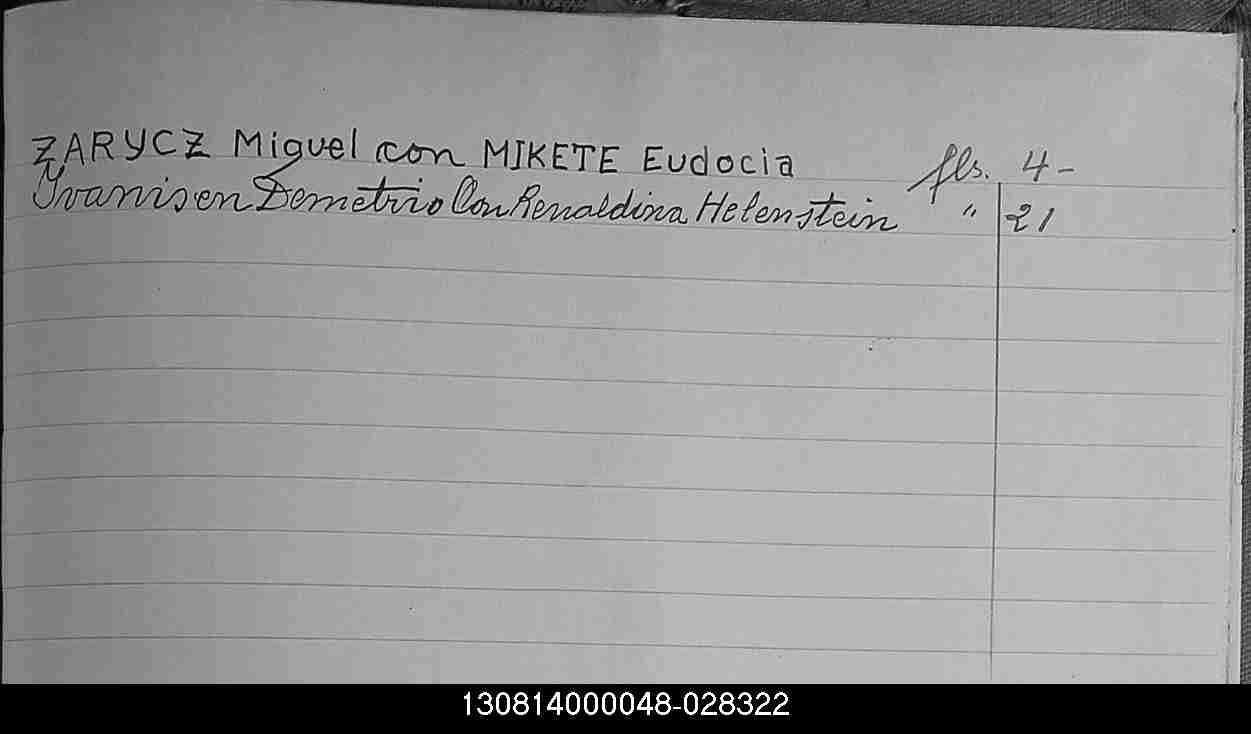 ZARYCZ Miguel con MIKETE Eudocia fls. 4-
Demetrio Con Renaldina Helenstein " 21
130814000048-028322